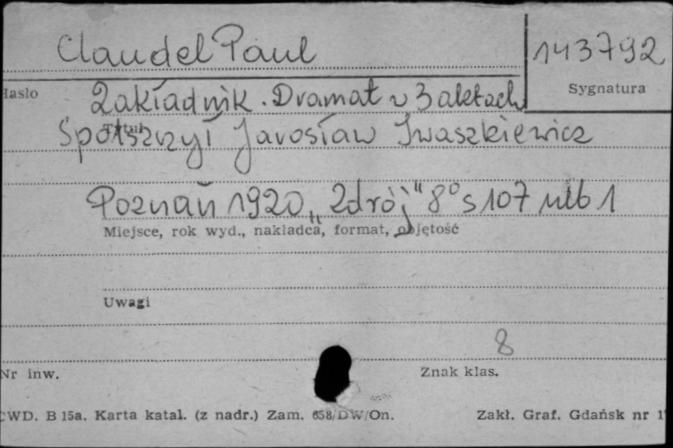 Claudel Paul
143792
Hasło
Sygnatura
Zakładnik. Dramat w 3 aktach
Tytuł
Spolszczył Jarosław Iwaszkiewicz
Poznań 1920 „Zdrój" 8° s 107 nlb 1
Miejsce, rok wyd., nakładca, format, objętość
Uwagi
8
Nr inw.
Znak klas.
CWD. B 15a. Karta katal. (z nadr.) Zam. 658/DW/On.
Zakł. Graf. Gdańsk nr 1